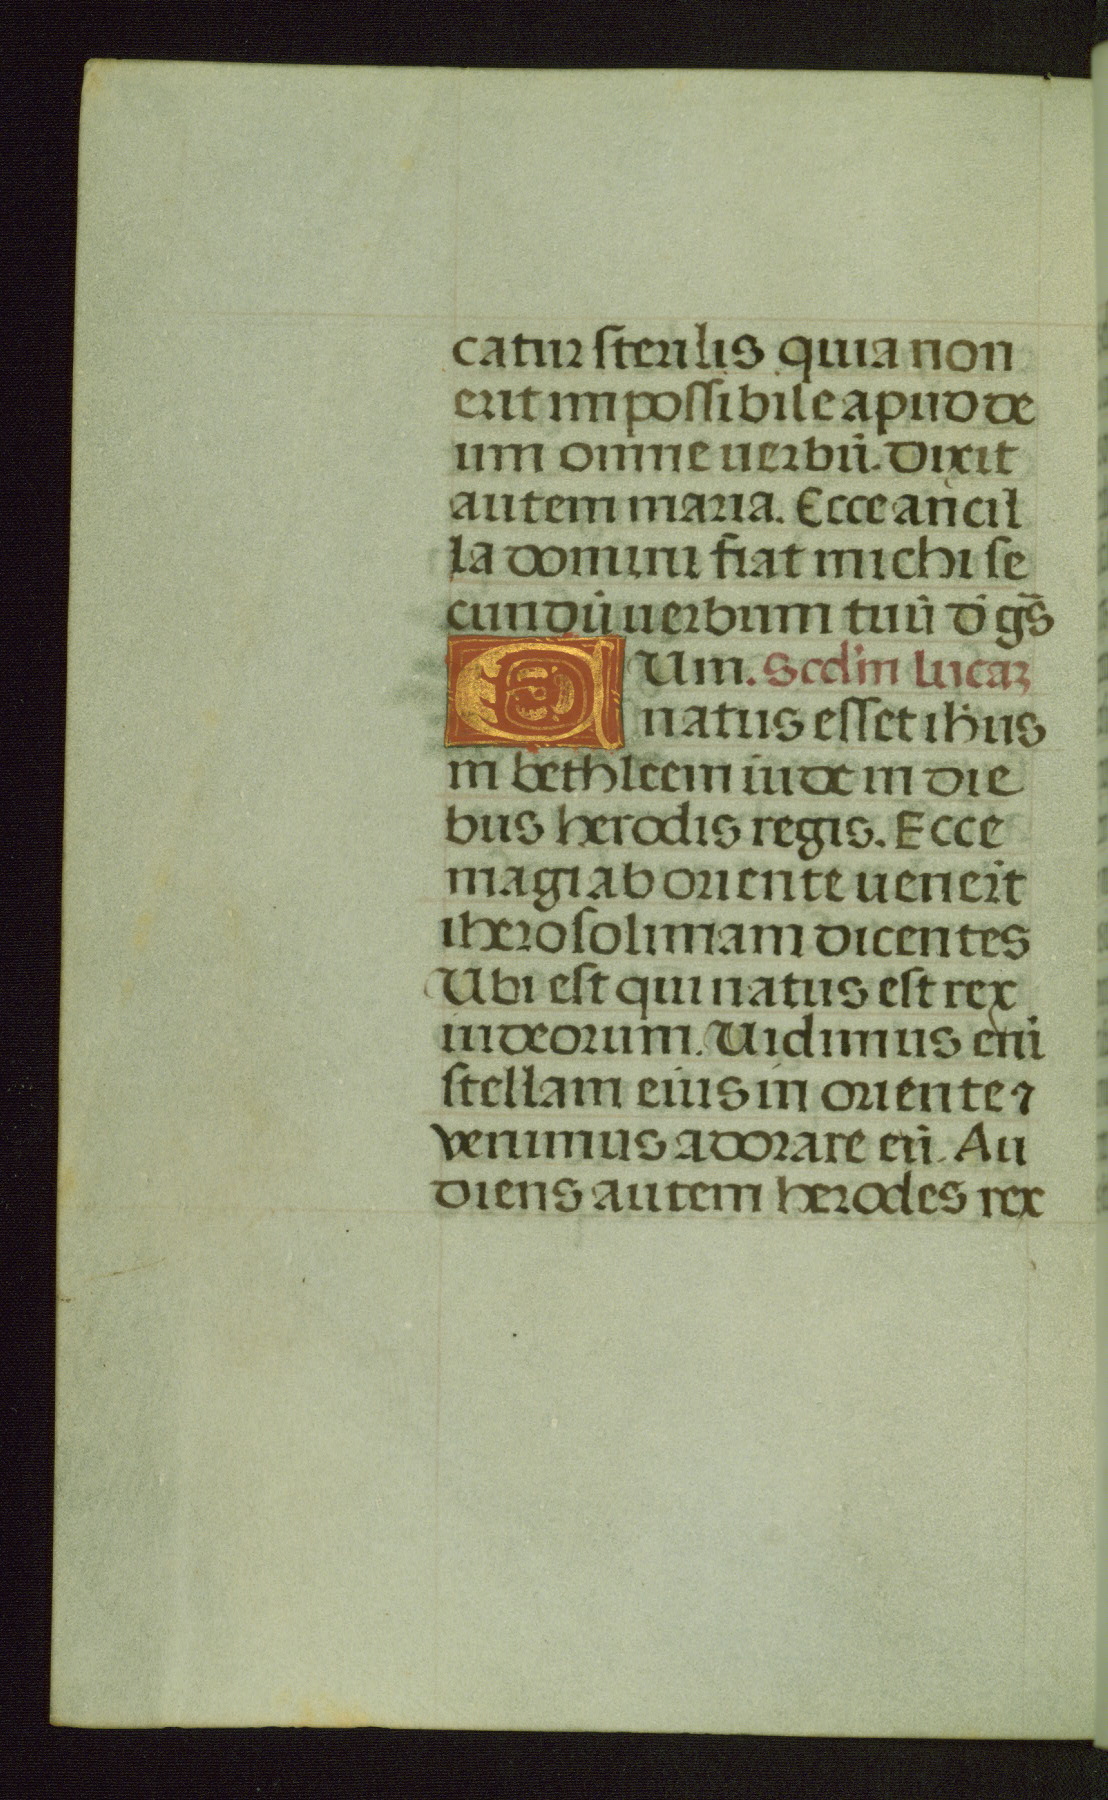 catur sterilis quia non
erit impossibile apud de
um omne uerbū. Dixit
autem maria. Ecce ancil
la domini fiat michi se
cundū uerbum tuū dō gr̄s
CUm. Scdm lucaꝫ
natus esset ihus
in bethleem iude in die
bus herodis regis. Ecce
magi ab oriente uenert̄
iherosolimam dicentes
Ubi est qui natus est rex
iudeorum. Uidimus eni
stellam eius in oriente ⁊
venimus adorare eū. Au
diens autem herodes rex